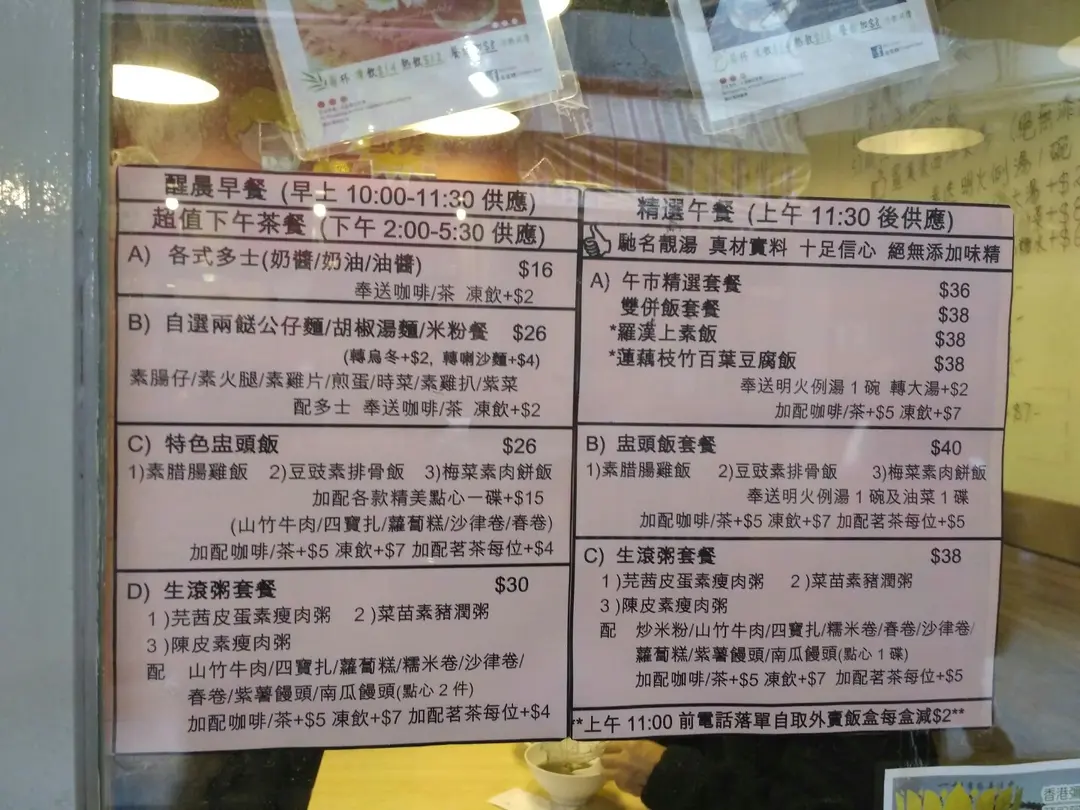 醒晨早餐 (早上 10:00-11:30 供應)
超值下午茶餐 (下午 2:00-5:30 供應)
A) 各式多士(奶醬/奶油/油醬) $16
奉送咖啡/茶 凍飲+$2
B) 自選兩餸公仔麵/胡椒湯麵/米粉餐 $26
(轉烏冬+$2, 轉喇沙麵+$4)
素腸仔/素火腿/素雞片/煎蛋/時菜/素雞扒/紫菜
配多士 奉送咖啡/茶 凍飲+$2
C) 特色盅頭飯 $26
1)素腊腸雞飯 2)豆豉素排骨飯 3)梅菜素肉餅飯
加配各款精美點心一碟+$15
(山竹牛肉/四寶扎/蘿蔔糕/沙律卷/春卷)
加配咖啡/茶+$5 凍飲+$7 加配茗茶每位+$4
D) 生滾粥套餐 $30
1)芫茜皮蛋素瘦肉粥 2)菜苗素豬潤粥
3)陳皮素瘦肉粥
配 山竹牛肉/四寶扎/蘿蔔糕/糯米卷/沙律卷/
春卷/紫薯饅頭/南瓜饅頭(點心 2 件)
加配咖啡/茶+$5 凍飲+$7 加配茗茶每位+$4
精選午餐 (上午 11:30 後供應)
馳名靚湯 真材實料 十足信心 絕無添加味精
A) 午市精選套餐 $36
雙併飯套餐 $38
*羅漢上素飯 $38
*蓮藕枝竹百葉豆腐飯 $38
奉送明火例湯 1 碗 轉大湯+$2
加配咖啡/茶+$5 凍飲+$7
B) 盅頭飯套餐 $40
1)素腊腸雞飯 2)豆豉素排骨飯 3)梅菜素肉餅飯
奉送明火例湯 1 碗及油菜 1 碟
加配咖啡/茶+$5 凍飲+$7 加配茗茶每位+$5
C) 生滾粥套餐 $38
1)芫茜皮蛋素瘦肉粥 2)菜苗素豬潤粥
3)陳皮素瘦肉粥
配 炒米粉/山竹牛肉/四寶扎/糯米卷/春卷/沙律卷/
蘿蔔糕/紫薯饅頭/南瓜饅頭(點心 1 碟)
加配咖啡/茶+$5 凍飲+$7 加配茗茶每位+$5
**上午 11:00 前電話落單自取外賣飯盒每盒減$2**
香港